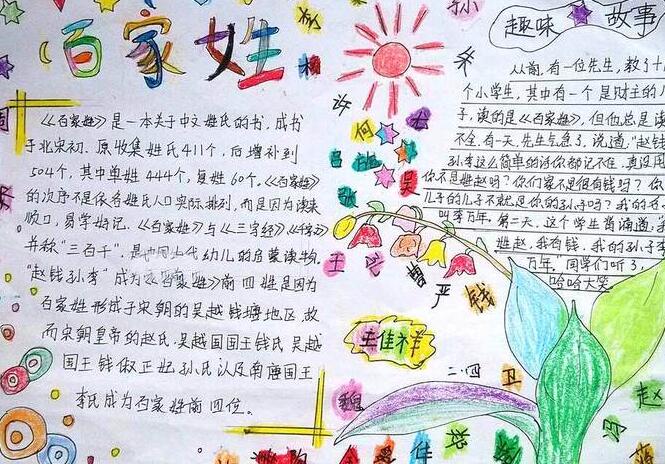 百家姓
《百家姓》是一本关于中文姓氏的书，成书
于北宋初。原收集姓氏411个，后增补到
504个，其中单姓444个，复姓60个。《百家姓》
的次序不是依各姓氏人口实际排列，而是因为读来
顺口，易学好记。《百家姓》与《三字经》《千字文》
并称"三百千"，是中国古代幼儿的启蒙读物。
"赵钱孙李"成为《百家姓》前四姓是因为
百家姓形成于宋朝的吴越钱塘地区，故
而宋朝皇帝的赵氏、吴越国国王钱氏、吴越
国王钱俶正妃孙氏以及南唐国王
李氏成为百家姓前四位。
趣味故事
从前，有一位先生，教了十几
个小学生，其中有一个是财主的儿
子，读的是《百家姓》，但他总是读
不全。有一天，先生气急了，说道，"赵钱
孙李这么简单的话你都记不住，真没用
你不是姓赵吗？你们家不是很有钱吗？你
儿子的儿子不就是你的孙子吗？我的
叫李万年。第二天，这个学生背诵道，我
姓赵，我有钱，我的孙子李
万年"同学们听了，
哈哈大笑
孙
朱
许
何
尤
吕
张
吴
王
曹
严
钱
王佳祥
二.四
卫
魏
赵
冯
周